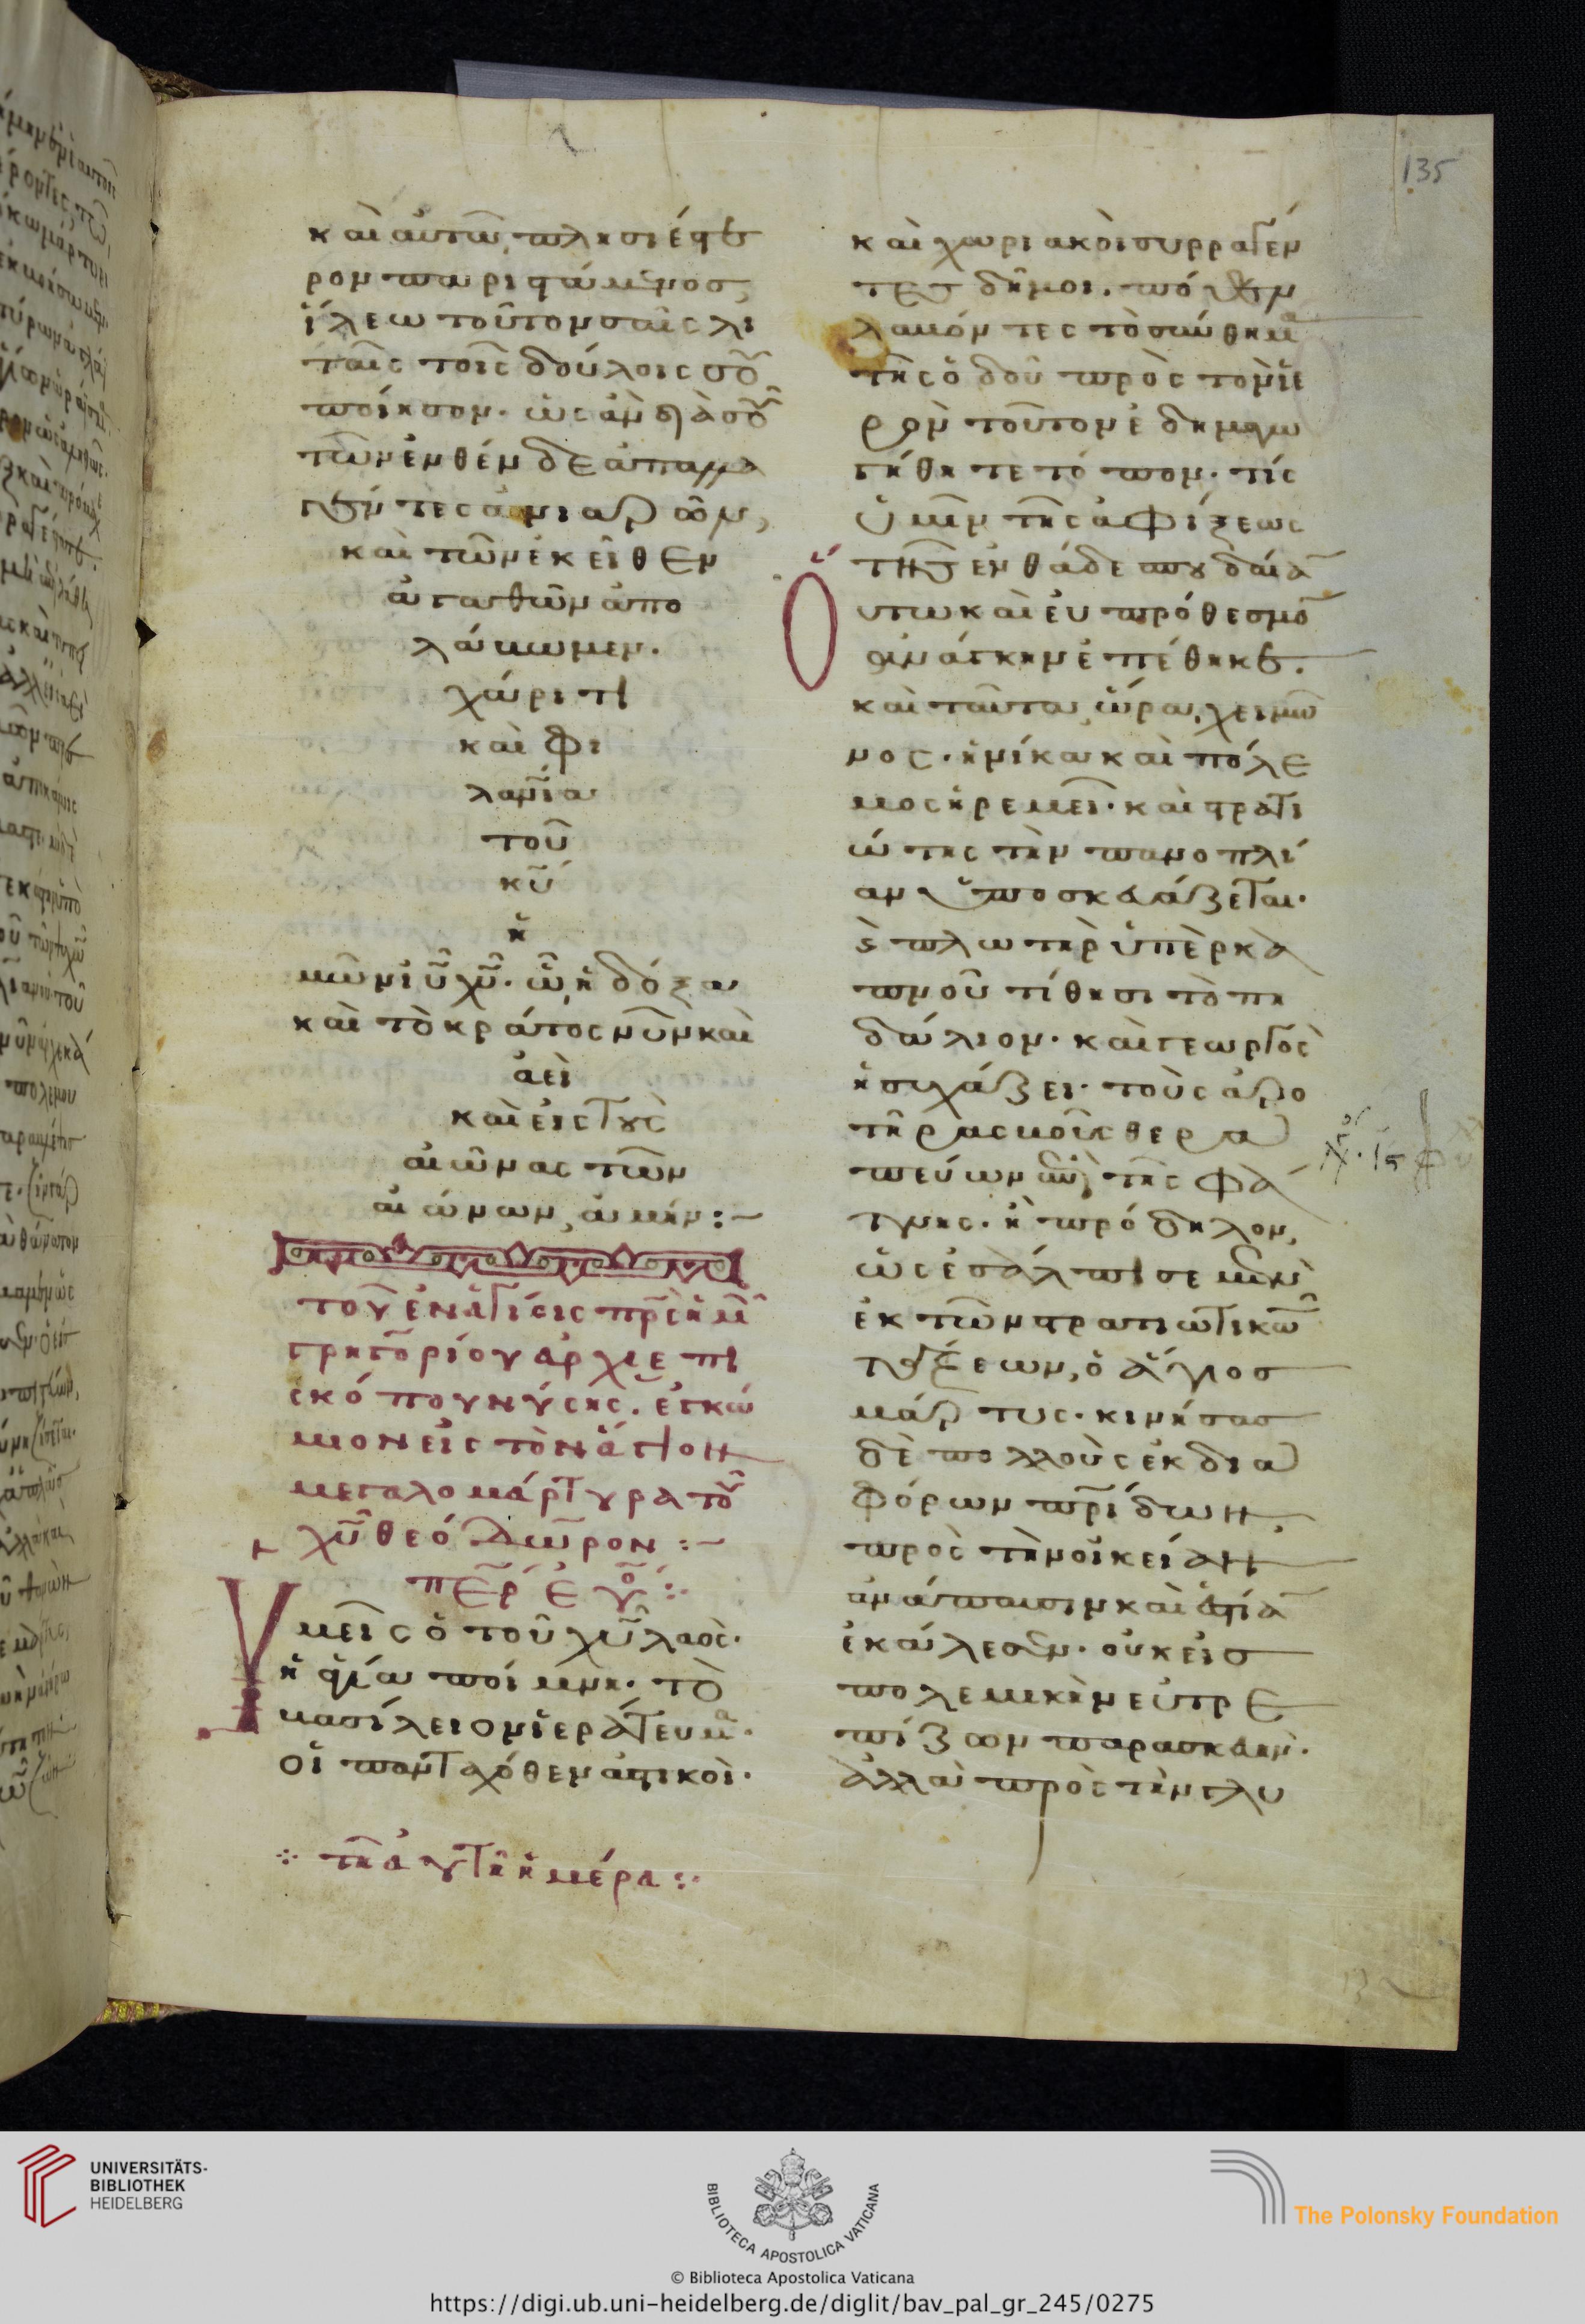 135
καὶ αὐτῶ πλησιέστε
ρον παριστάμενος,
ἵλεω τοῦτον ταῖς λι
ταῖς τοῖς δούλοις σου
ποίησον. ὡς ἂν διὰ σοῦ
τῶν ἐνθένδε ἀπαλλα
γέντες ἀνιαρῶν,
καὶ τῶν ἐκεῖθεν
ἀγαθῶν ἀπο
λάβωμεν.
χάριτι
καὶ φι
λανία
τοῦ
κυ
ἡ
μῶν ιυ χυ. ὧ ἡ δόξα
καὶ τὸ κράτος νῦν καὶ
ἀεὶ
καὶ εἰς τοὺς
αἰῶνας τῶν
αἰώνων, ἀμήν:~
τοῦ ἐν ἁγίοις πρς ἡμ
γρηγορίου ἀρχιεπι
σκόπου νύσης. ἐγκώ
μιον εἰς τὸν ἅγιον
μεγαλομάρτυρα τοῦ
χυ θεόδωρον:~
Υμεῖς ὁ τοῦ χυ λαός.
ἡ ἁγία ποίμνη. τὸ
βασίλειον ἱεράτευμα.
οἱ πανταχόθεν ἀστικοὶ.
τῆ αὐτῆ ἡμέρα:
καὶ χωριακοὶ συρραγέν
τες δῆμοι. πόθεν
λαβόντες τὸ σύνθημα
τῆς ὁδοῦ πρὸς τὸν ἱε
ρὸν τοῦτον ἐδημαγω
γήθητε τόπον. τίς
ὑμῖν τῆς ἀφίξεως
τῆς ἐνθάδε σπουδαίαν
οὕτω καὶ ἐμπρόθεσμον
ἀνάγκην ἐπέθηκε.
καὶ ταῦτα ὥρα χειμῶ
νος. ἡνίκα καὶ πόλε
μος ἠρεμεῖ. καὶ στρατι
ώτης τὴν πανοπλί
αν ἀποσκευάζεται.
πλωτὴρ ὑπὲρ κα
πνοῦ τίθησι τὸ πη
δάλιον. καὶ γεωργὸς
ἡσυχάζει. τοὺς ἀρο
τῆρας βοῦς θερα
πεύων ἐπὶ τῆς φά
τνης. ἢ πρόδηλον,
ὡς ἐσάλπισε μὲν
ἐκ τῶν στρατιωτικῶν
τάξεων, ὁ ἅγιος
μάρτυς. κινήσας
δὲ πολλοὺς ἐκ δια
φόρων πρίδων,
πρὸς τὴν οἰκείαν
ἀνάπαυσιν καὶ ἑστίαν
ἐκάλεσεν. οὐκ εἰς
πολεμικὴν εὐτρε
πίζων παρασκευὴν.
ἀλλὰ πρὸς τὴν γλυ
UNIVERSITÄTS-
BIBLIOTHEK
HEIDELBERG
BIBLIOTECA APOSTOLICA VATICANA
The Polonsky Foundation
© Biblioteca Apostolica Vaticana
https://digi.ub.uni-heidelberg.de/diglit/bav_pal_gr_245/0275